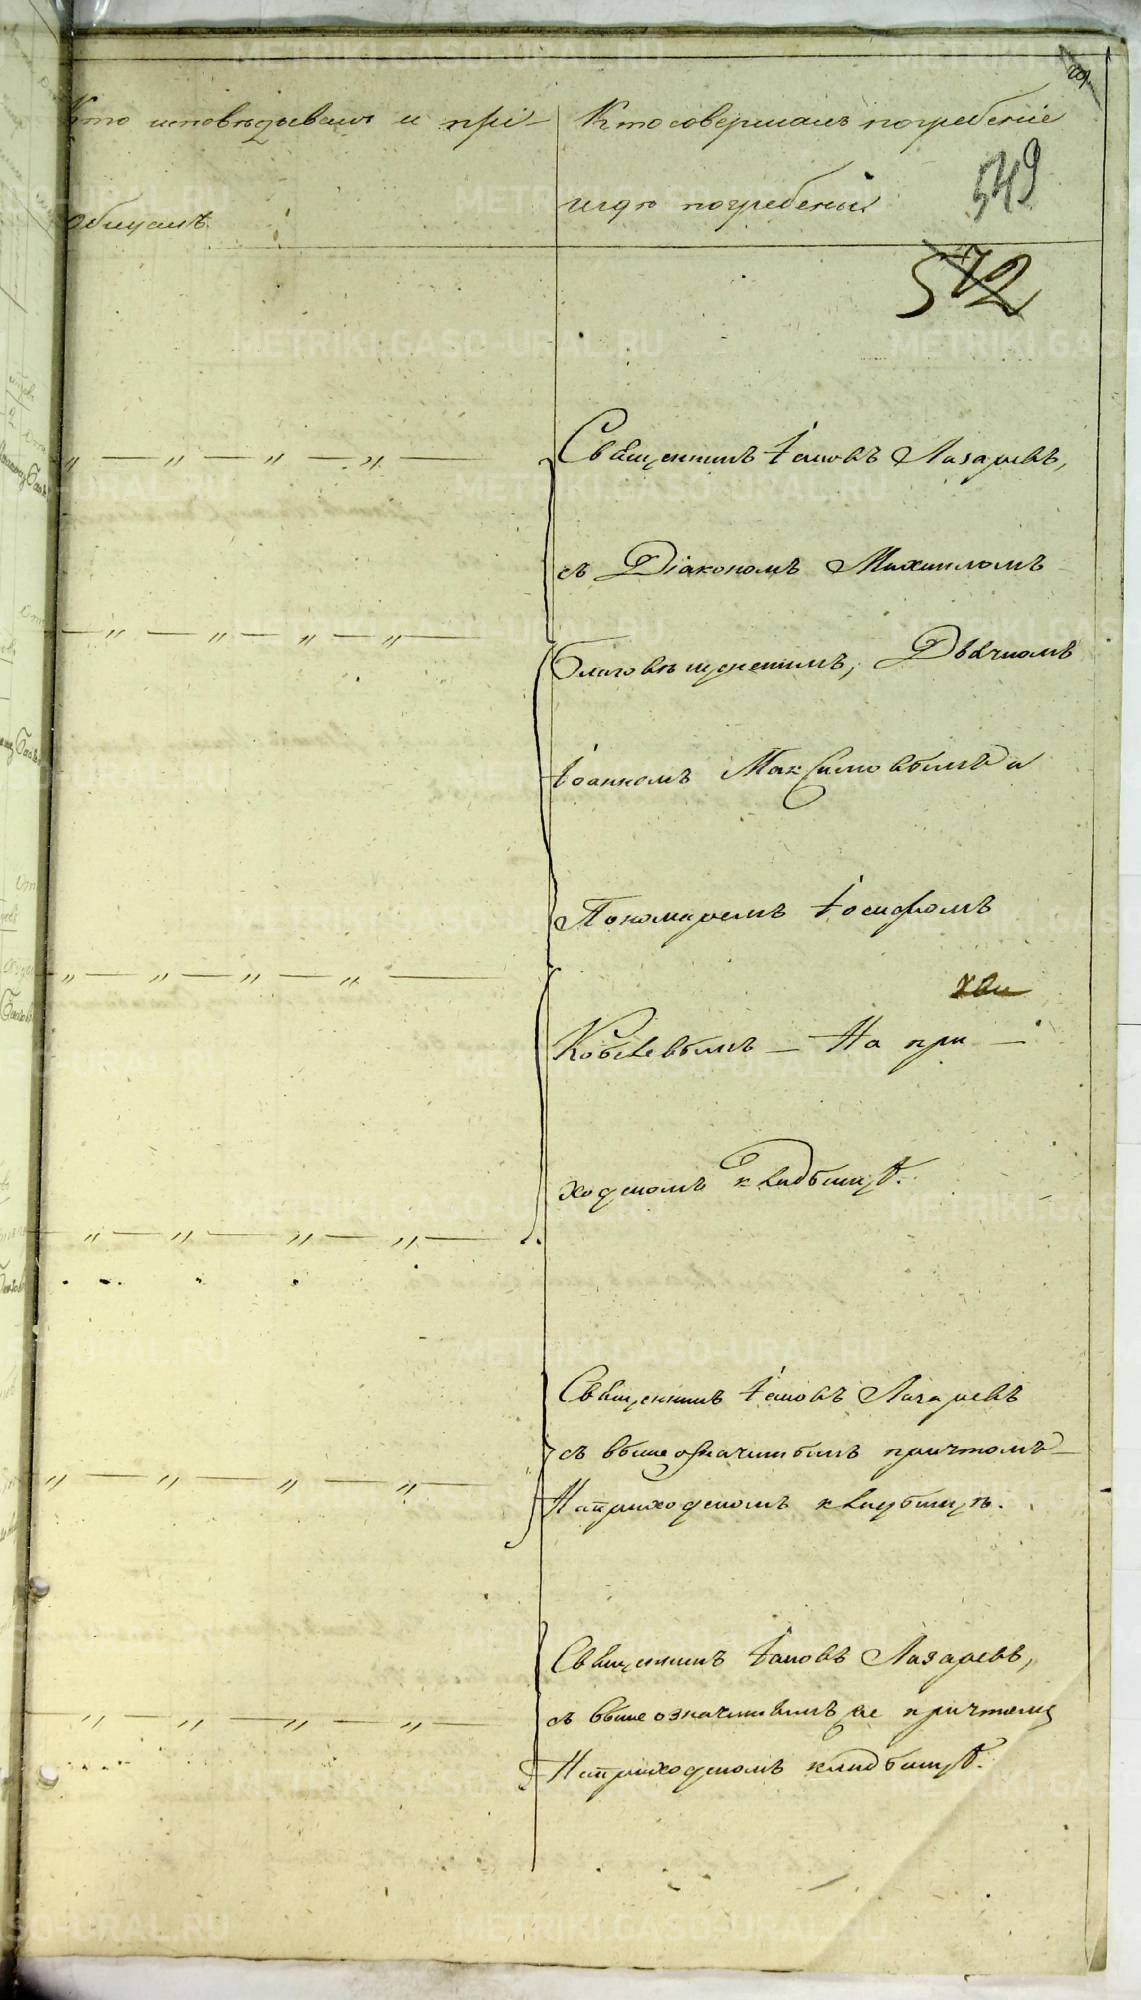 Кто исповѣдывалъ и прі-
общалъ.
Кто совершалъ погребеніе
и гдѣ погребены
549
572
Священникъ Іаковъ Лазаревъ,
съ Діакономъ Михаиломъ
Благовѣщенскимъ, Дьячкомъ
Іоанномъ Максимовымъ и
Пономаремъ Іосифомъ
Кобелевымъ — На при —
ходскомъ кладбищѣ.
Священникъ Іаковъ Лазаревъ
съ вышеозначеннымъ причтомъ
На приходскомъ кладбищѣ.
Священникъ Іаковъ Лазаревъ,
съ вышеозначеннымъ же причтомъ
На приходскомъ кладбищѣ.
METRIKI.GASO-URAL.RU